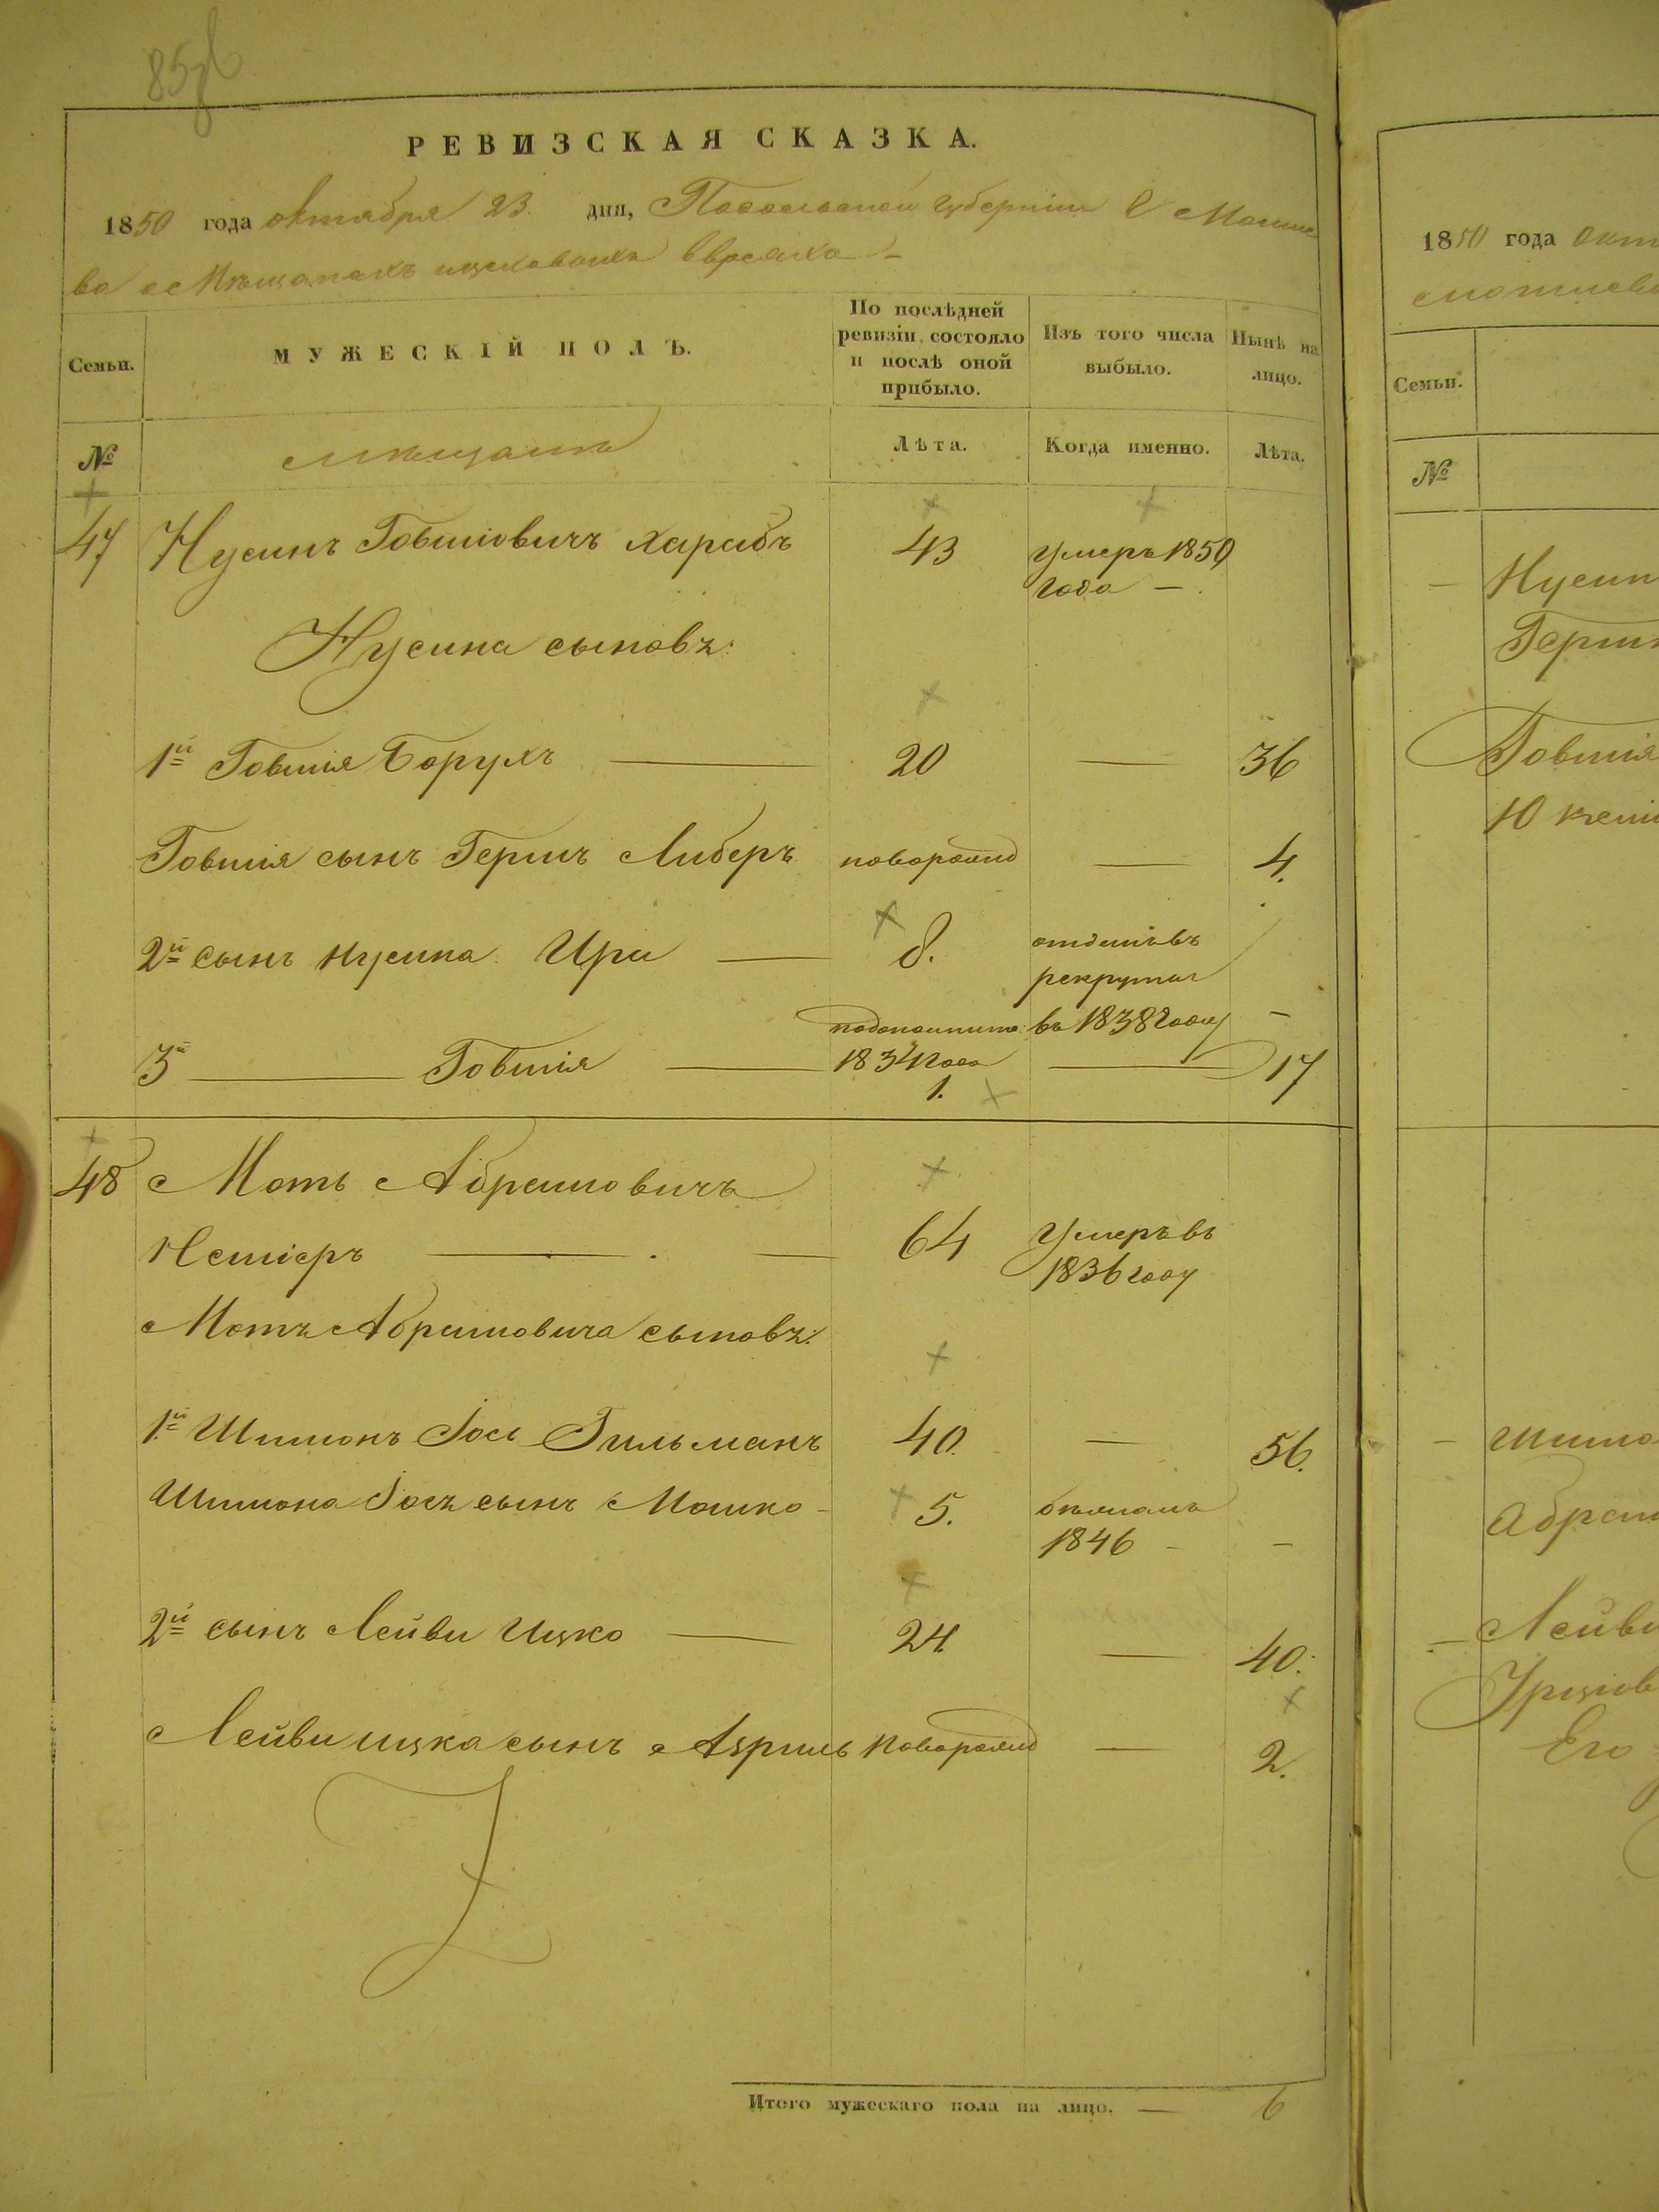 85
РЕВИЗСКАЯ СКАЗКА.
1850 года октября 23. дня, Подольской губернии
ва о Мѣщанахъ Евреяхъ
Семьи.
МУЖЕСКІЙ ПОЛЪ.
По послѣдней ревизіи состояло и послѣ оной прибыло.
Изъ того числа выбыло.
Нынѣ на лицо.
№
мѣщанъ
Лѣта.
Когда именно.
Лѣта.
47 Нусинъ Говшіовичъ Харабъ 43 умеръ 1850
года —
Нусина сыновъ:
1й Говшія Борухъ — 20 — 36
Говшія сынъ Гершъ Либеръ новорожд — 4.
2й сынъ Нусина Ири — 8. отданъ въ
рекруты
въ 1838 году —
3й — Говшія — 1834 года — 17
1.
48 Моть Абрамовичъ
64 умеръ въ
1836 году
Моть Абрамовича сыновъ:
1й Шимонъ Іось Гильманъ 40. — 56.
Шимона Іось сынъ Мошко — 5. бѣжалъ
1846 — —
2й сынъ Лейви Ицко — 24. — 40.
Лейви Ицка сынъ Азриль новорожд — 2.
Итого мужескаго пола на лицо. — 6
1850 года окт
Семьи.
№
— Нусин
Герш
Говшія
— Шимо
Абрам
— Лейви
Его